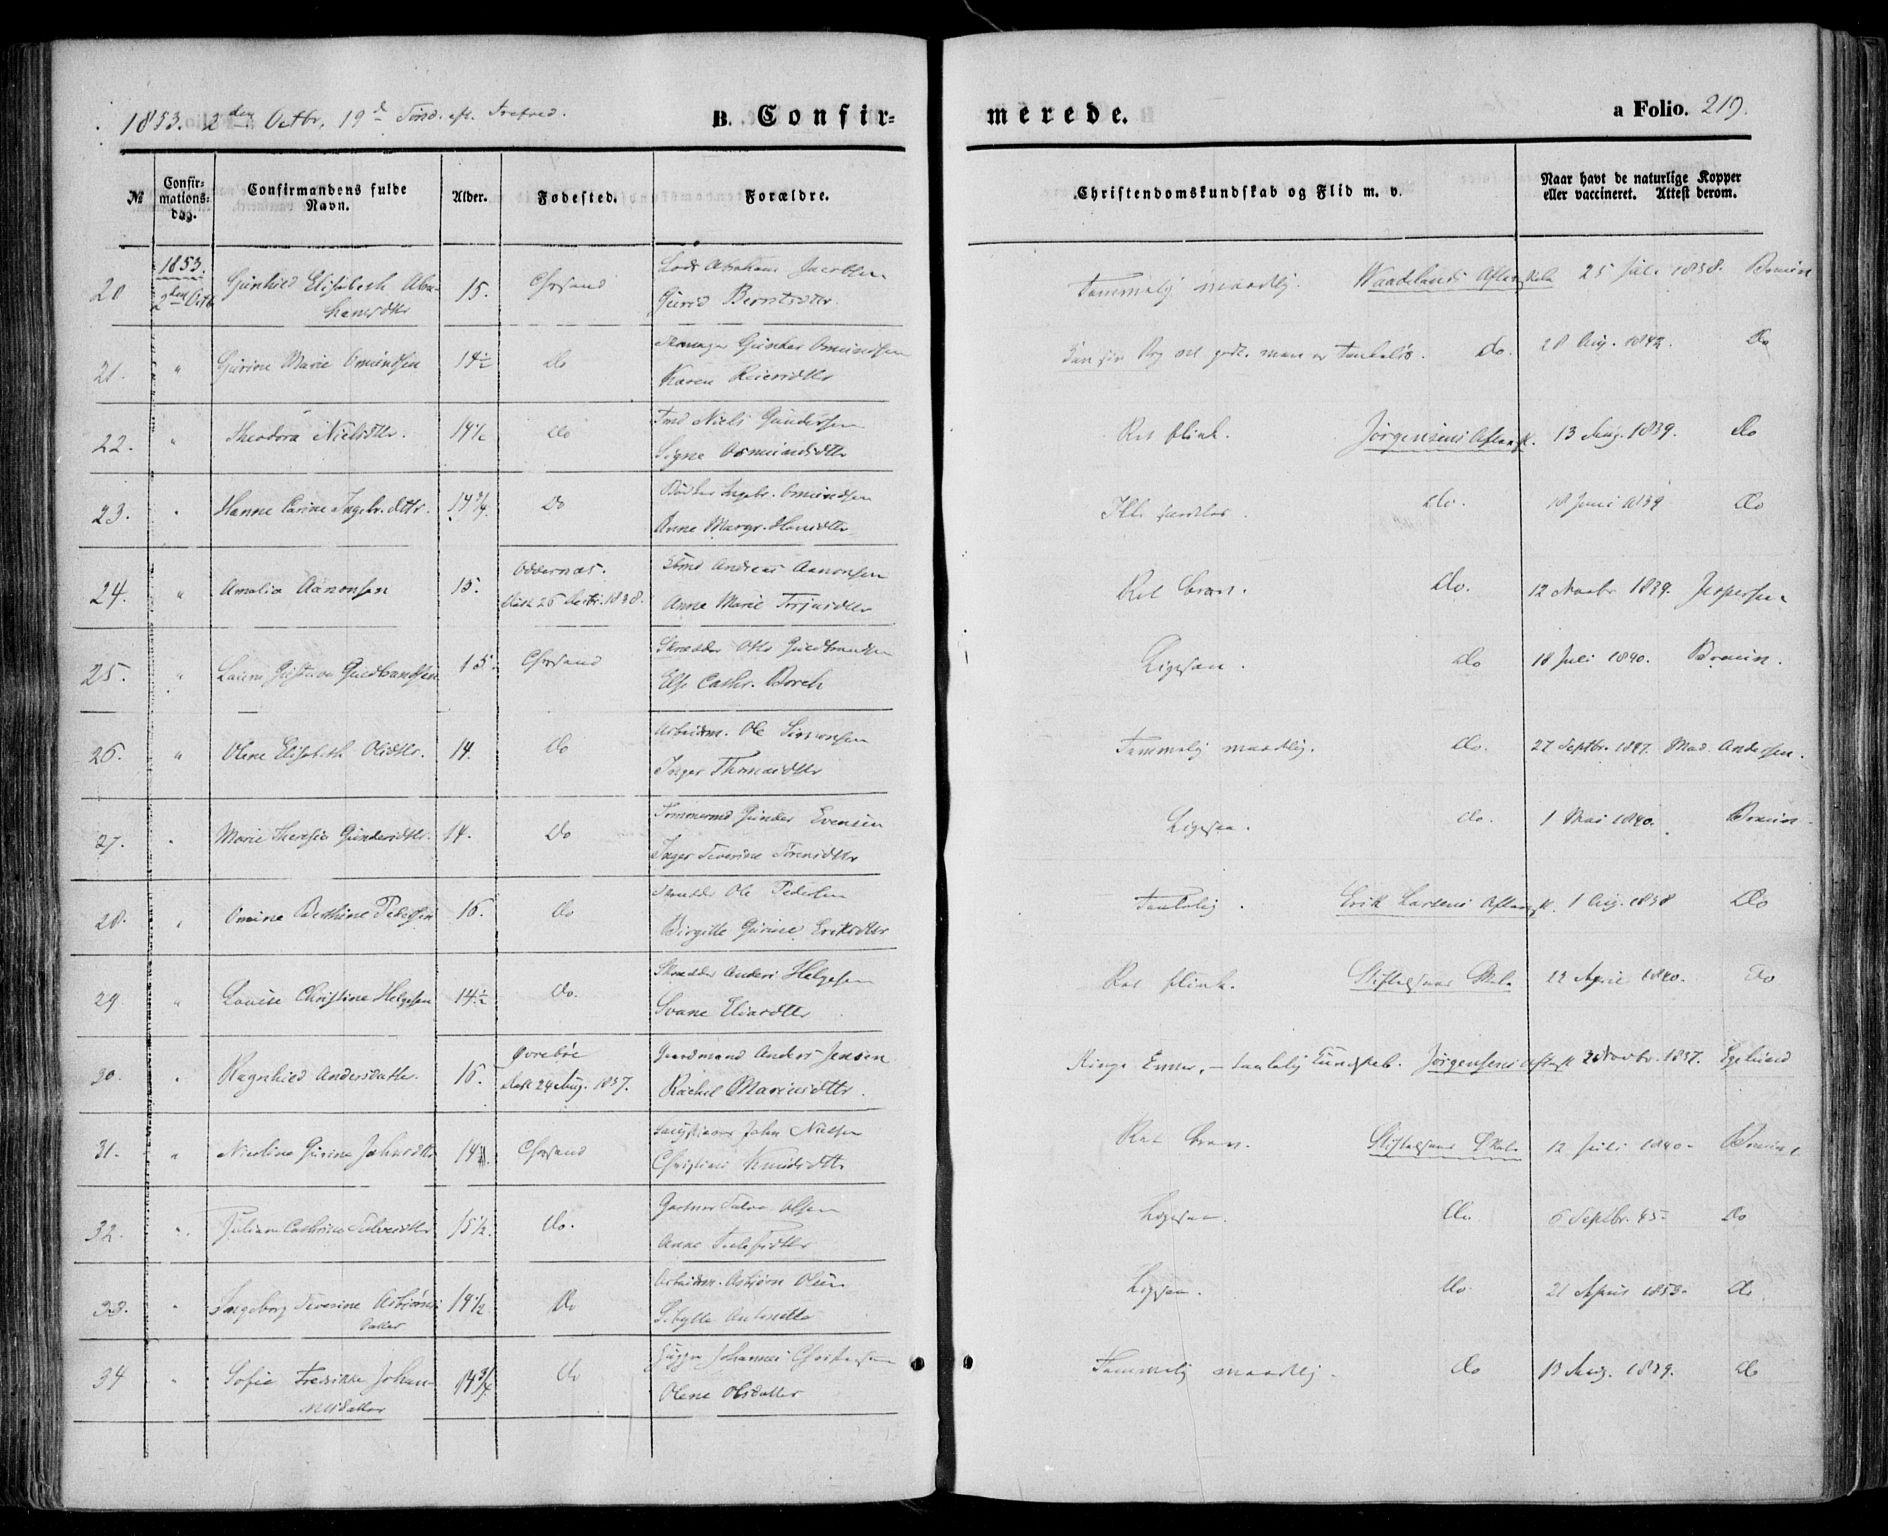 1853. 2den Octbr. 19d Sønd. eft. Trefred.
B. Confirmerede.
a Folio. 219.
№
Confirmationsdag.
Confirmandens fulde Navn.
Alder.
Fødested.
Forældre.
Christendomskundskab og Flid m. v.
Naar havt de naturlige Kopper eller vaccineret. Attest derom.
1853.
20 2den Octb Gunhild Elisabeth Abrahamsdtr 15. Chrsand Lods Abraham Jacobsen
Gurid Berntsdtr. Temmelig maadelig. Waadelands Aftenskole 25 Juli 1838. Broun
21. " Gurine Marie Omundsen 14½ Do Gunder Omundsen
Karen Reiersdtr Do. 28 Aug. 1842. Do
22. " Theodora Nielsdtr. 14½ Do Niels Gundersen
Signe Osmundsdtr Ret flink. Jørgensens Aftensk. 13 Aug. 1839. Do
23. " Hanne Karine Ingebr.dttr. 14¾. Do Bødker Ingebr. Omundsen
Anne Margr. Hansdtr Do. 18 Juni 1839 Do
24. " Amalia Aanonsen 15. Oddernæs. Andreas Aanonsen
døbt 26 1838. Anne Marie Terjesdtr Ret brav. Do. 12 Novbr 1839. Jespersen
25. " Laura Gustava Guldbrandsen 15. Chrsand Skrædder Ole Guldbrandsen
Else Cathr. Borch Ligesaa. Do 18 Juli 1840. Broun.
26. " Olene Elisabeth Olsdtr. 14. Do Arbeidsm. Ole Simonsen
Inger Thomasdtr Temmelig maadelig. Do. 27 Septbr. 1847. Mad. Andersen.
27. " Marie Theresie Gundersdtr. 14. Do Tømmermd Gunder Evensen
Inger Severine Sørensdtr Ligesaa. do. 1 Mai 1840. Broun
28. " Omine Bethine Pedersen 16. Do Skrædder Ole Pedersen
Birgitte Gurine Eriksdtr Taalelig. Erik Larsens Aftensk. 1 Aug. 1838 Do
29 " Louise Christine Helgesen 14½ Do. Skrædder Anders Helgesen
Svane Eliasdtr Ret flink. Stiftelsens Skole 12 April 1840. Do
30. " Ragnhild Andersdatter. 16. Øvrebøe Gaardmand Anders Jensen
døbt 24 Aug. 1837. Rachel Mariusdtr. Ringe Evner, – taalelig Kundskab. Jørgensens Aftensk 26 Novbr. 1837. Egelund
31. " Nicoline Gurine Johnsdtr 14½. Chrsand John Nielsen
Christiane Knudsdtr Ret brav. Stiftelsens Skole 12 Juli 1840. Broun
32. " Juliane Cathrine Salvesdtr 15½. Do. Gartner Salve Olsen
Anne Ligesaa. Do. 6 Septbr. 45 Do
33. " Ingeborg Severine Asbjørnsdatter 14½ Do Arbeidsm. Asbjørn Olsen
Sibylle Antonette Ligesaa. Do. 21 April 1853. do.
34 " Sofie Fredrikke Johannesdatter 14¾ Do Johannes Christensen
Olene Olsdatter Temmelig maadelig. Do 13 Aug. 1839. do